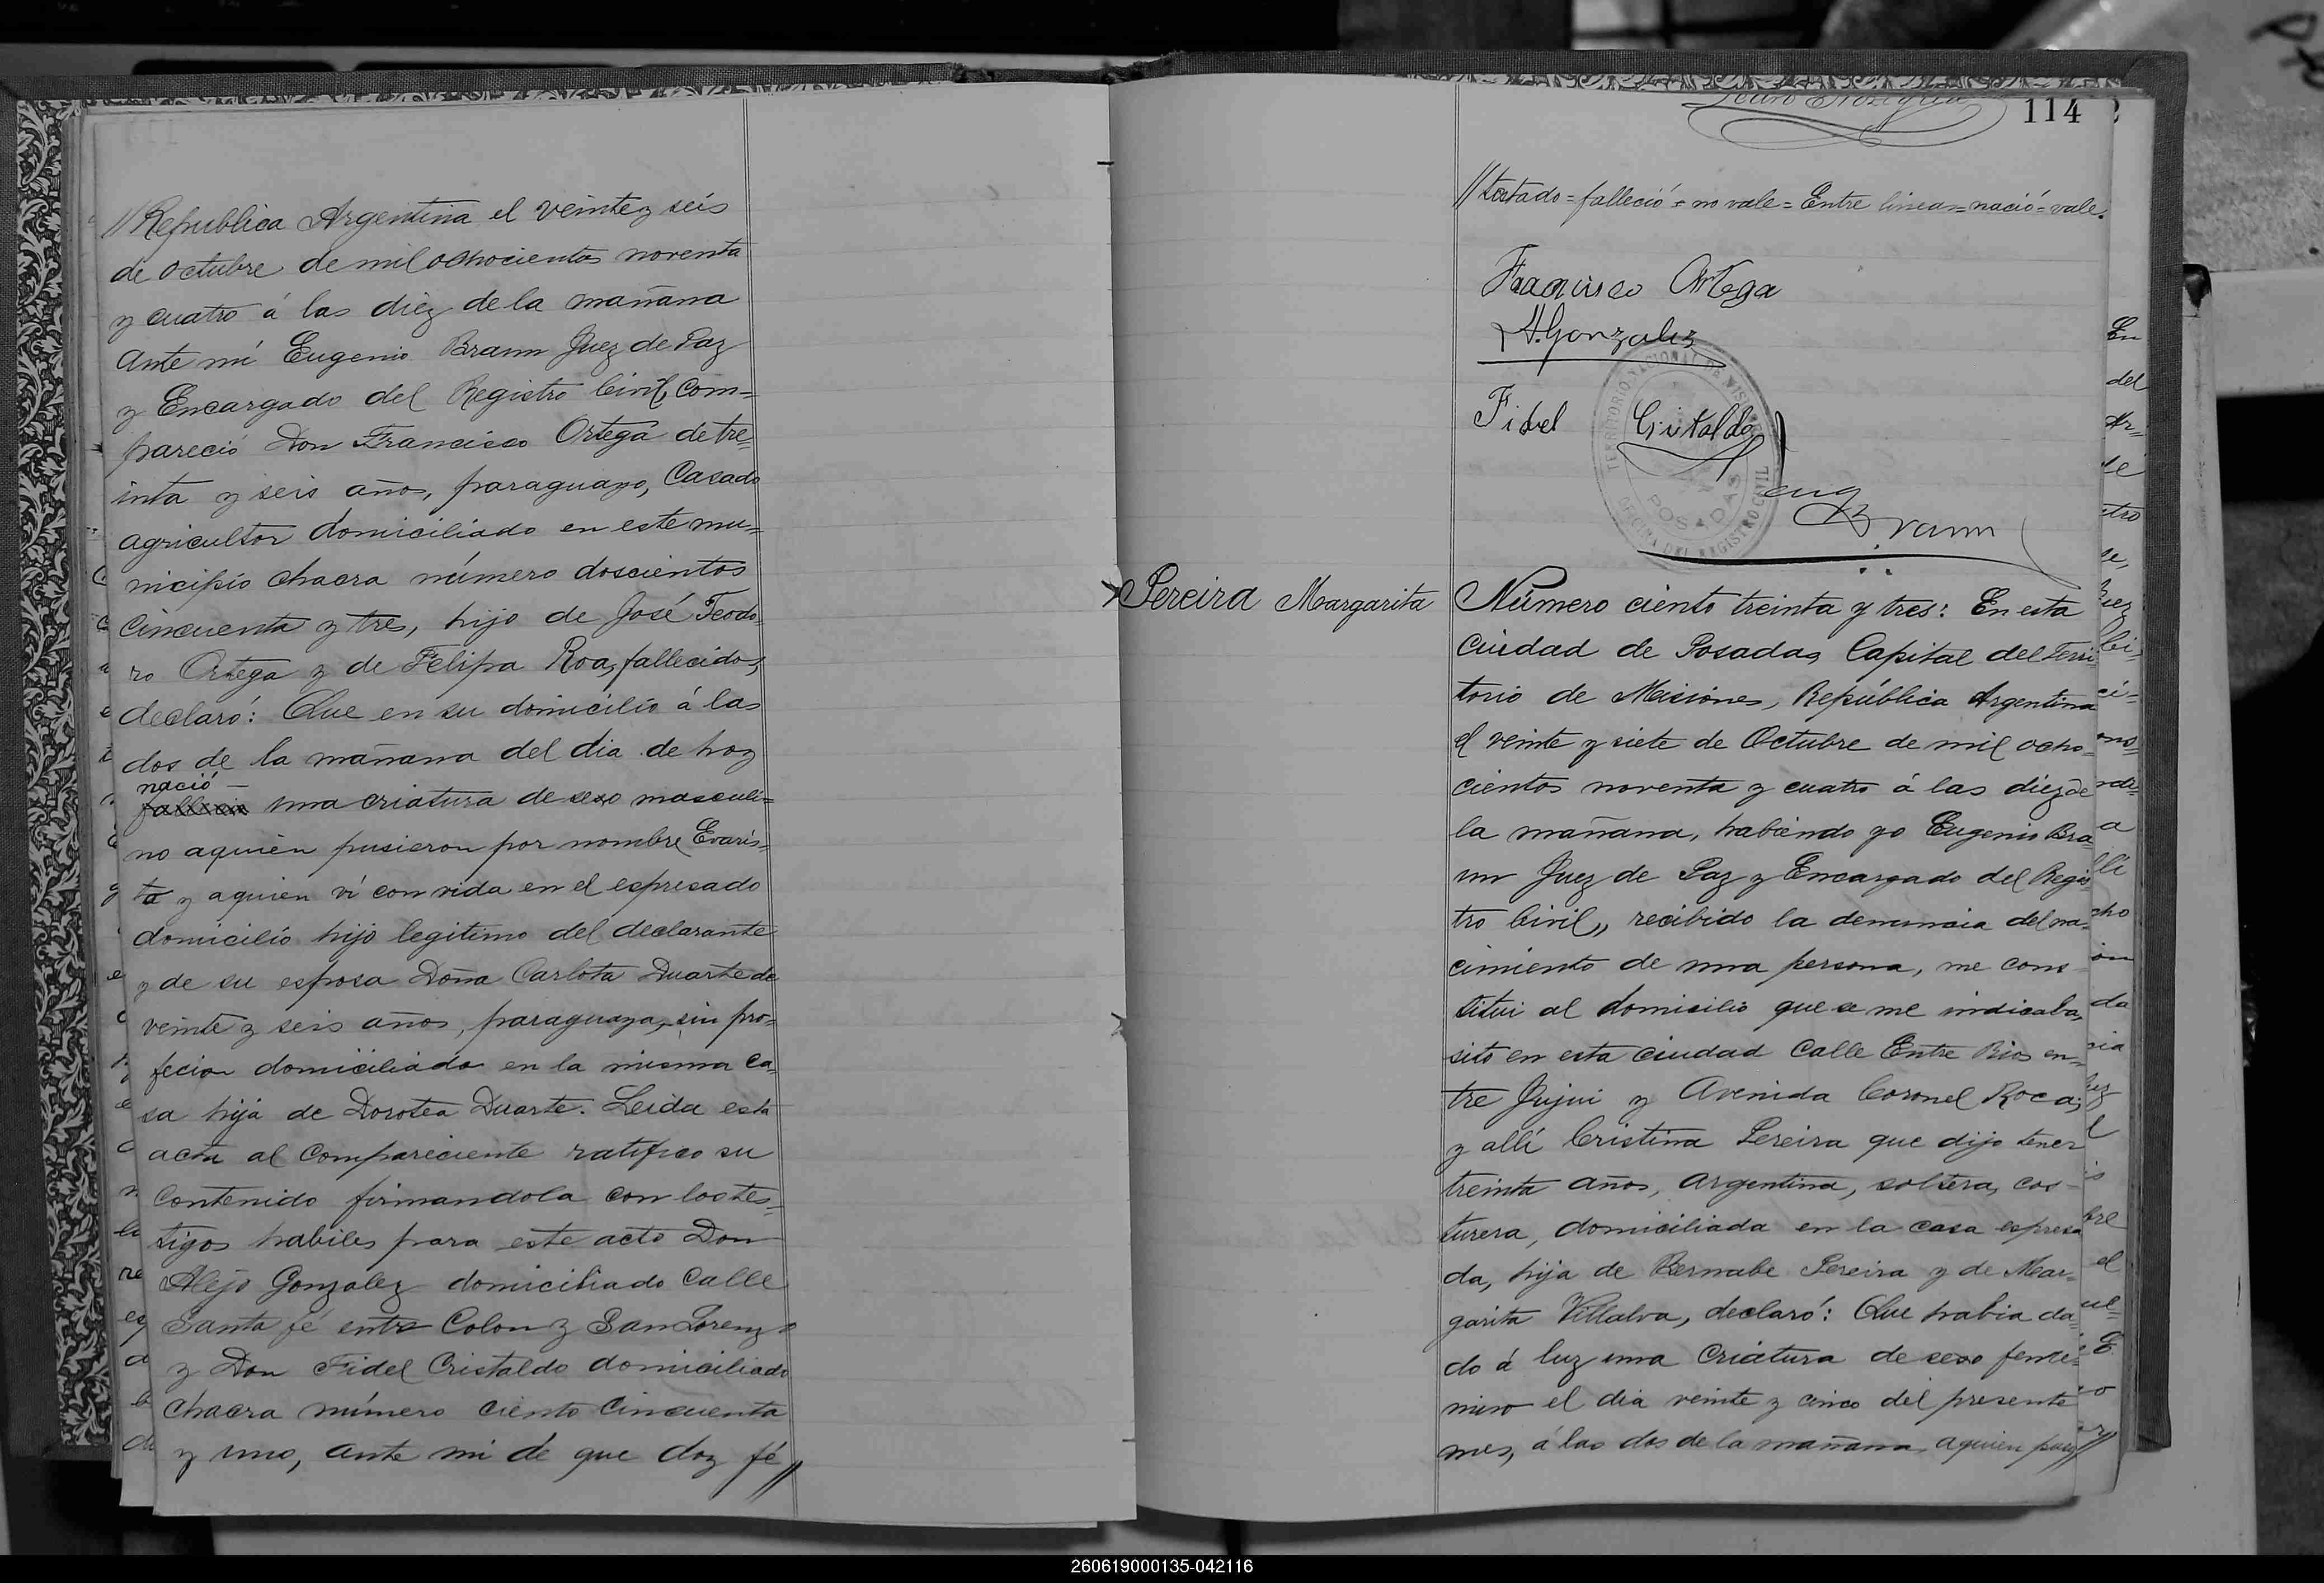 //Republica Argentina el veinte y seis
de octubre de mil ochocientos noventa
y cuatro á las diez de la mañana
Ante mi Eugenio Brann Juez de Paz
y Encargado del Registro Civil, com=
pareció Don Francisco Ortega de tre=
inta y seis años, paraguayo, Casado
agricultor domiciliado en este mu=
nicipio chacra número doscientos
cincuenta y tres, hijo de José Teodo=
ro Ortega y de Felipa Roa, fallecidos,
declaró: Que en su domicilio á las
dos de la mañana del dia de hoy
nació
falleció una criatura de sexo masculi=
no aquien pusieron por nombre Evaris=
to y aquien ví con vida en el espresado
domicilio hijo legitimo del declarante
y de su esposa Doña Carlota Duarte de
veinte y seis años, paraguaya, sin pro=
fecion domiciliada en la misma ca=
sa hija de Dorotea Duarte. Leida esta
acta al compareciente ratifico su
contenido firmandola con los tes=
tigos habiles para este acto Don
Alejo Gonzalez domiciliado Calle
Santa fé entre Colon y San Lorenzo
y Don Fidel Cristaldo domiciliado
chacra número ciento cincuenta
y uno, ante mi de que doy fé//
114
//testado=falleció=no vale=Entre lineas=nació=vale.
Francisco Ortega
A. Gonzalez
Fidel Cristaldo
TERRITORIO NACIONAL DE MISIONES
POSADAS
OFICINA DEL REGISTRO CIVIL
Eug Brann
Pereira Margarita
Número ciento treinta y tres: En esta
Ciudad de Posadas, Capital del Terri
torio de Misiones, República Argentina
el veinte y siete de Octubre de mil ocho=
cientos noventa y cuatro á las diez de
la mañana, habiendo yo Eugenio Bra
nn Juez de Paz y Encargado del Regis
tro Civil,, recibido la denuncia del na=
cimiento de una persona, me cons
titui al domicilio que se me indicaba,
sito en esta ciudad Calle Entre Rios en=
tre Jujui y Avenida Coronel Roca;
y allí Cristina Pereira que dijo tener
treinta años, argentina, soltera, cos=
turera, domiciliada en la casa espresa
da, hija de Bernabe Pereira y de Mar=
garita Villalva, declaró: Que habia da=
do á luz una criatura de sexo feme=
nino el dia veinte y cinco del presente
mes, á las dos de la mañana, aquien puso//
260619000135-042116